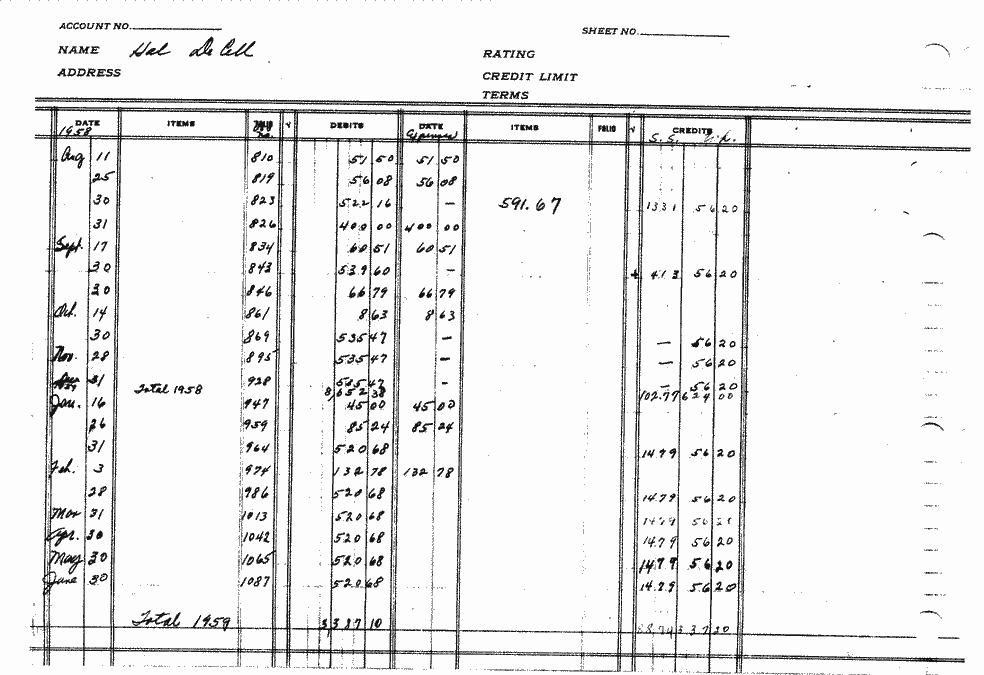 ACCOUNT NO. SHEET NO.
NAME Hal De Cell RATING
ADDRESS CREDIT LIMIT
TERMS
DATE ITEMS FOLIO √ DEBITS DATE ITEMS FOLIO √ CREDITS
1958 No. Expenses S.S.
Aug 11 810 51 50 51 50
25 819 56 08 56 08
30 823 522 16 — 591.67 1331 56 20
31 826 400 00 400 00
Sept. 17 834 60 51 60 51
30 843 539 60 — 4 13 56 20
30 846 66 79 66 79
Oct. 14 861 8 63 8 63
30 869 535 47 — — 56 20
Nov. 28 895 535 47 — — 56 20
31 928 535 47 - — 56 20
Total 1958 8,052 38 102.77 624 00
Jan. 16 947 45 00 45 00
26 959 85 24 85 24
31 964 520 68 14.79 56 20
Feb. 3 974 132 78 132 78
28 986 520 68 14.79 56 20
Mar 31 1013 520 68 14.79 56 20
Apr. 30 1042 520 68 14.79 56 20
May 30 1065 520 68 14.79 56 20
June 30 1087 520 68 14.79 56 20
Total 1959 3,387 10 88.74 337 20